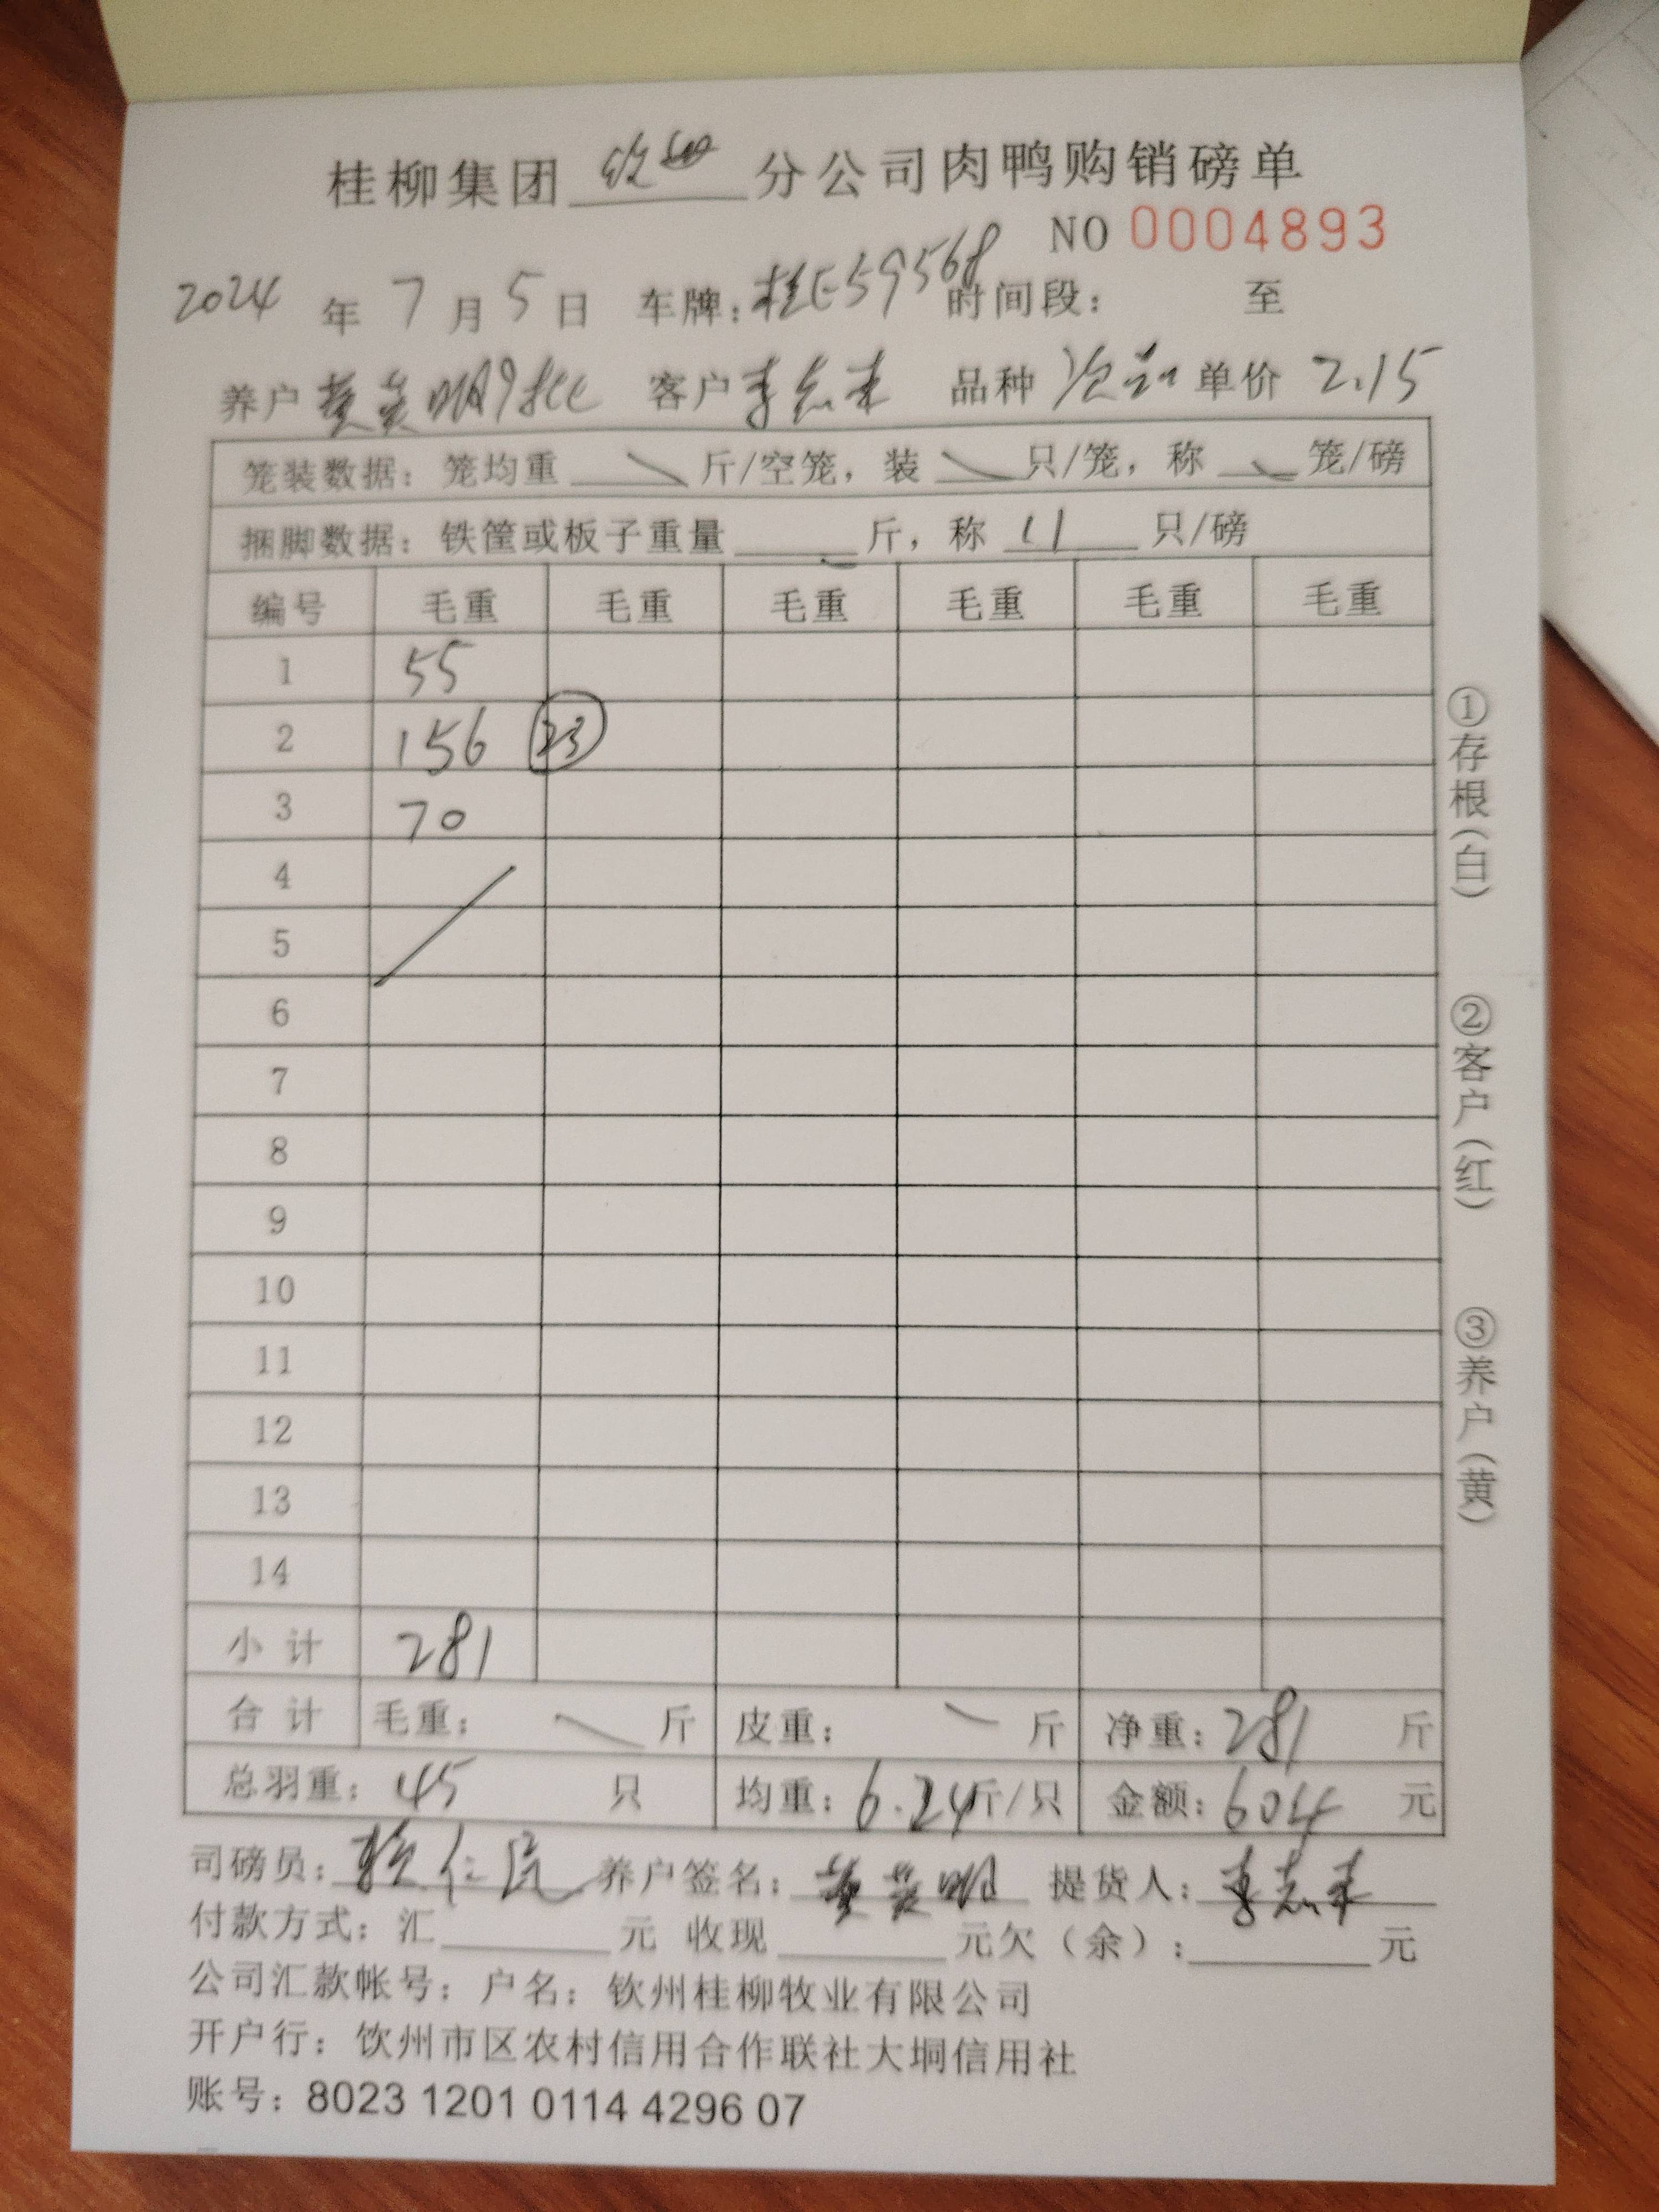 桂柳集团 钦州 分公司肉鸭购销磅单
NO 0004893
2024 年 7 月 5 日 车牌:桂E59568 时间段: 至
养户 黄英明 客户 李志来 品种 单价 2.15
笼装数据: 笼均重 斤/空笼, 装 只/笼, 称 笼/磅
捆脚数据: 铁筐或板子重量 斤, 称 11 只/磅
编号 毛重 毛重 毛重 毛重 毛重 毛重
1 55
2 156 23
3 70
4
5
6
7
8
9
10
11
12
13
14
小 计 281
合 计 毛重: 斤 皮重: 斤 净重: 281 斤
总羽重: 45 只 均重: 6.24 斤/只 金额: 604 元
司磅员: 养户签名: 黄英明 提货人: 李志来
付款方式: 汇 元 收现 元欠(余): 元
公司汇款帐号: 户名: 钦州桂柳牧业有限公司
开户行: 钦州市区农村信用合作联社大垌信用社
账号: 8023 1201 0114 4296 07
①存根(白)
②客户(红)
③养户(黄)